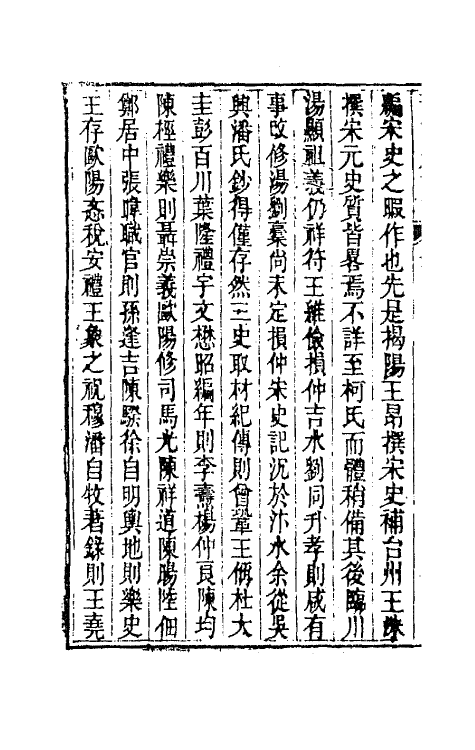 編宋史之暇作也先是揭陽王昂撰宋史補台州王洙
撰宋元史質皆畧焉不詳至柯氏而體稍備其後臨川
湯顯祖義仍祥符王維儉損仲吉水劉同升孝則咸有
事改修湯劉藁尚未定損仲宋史記沉於汴水余從吳
興潘氏鈔得僅存然三史取材紀傳則曾鞏王偁杜大
圭彭百川葉隆禮宇文懋昭編年則李燾楊仲良陳均
陳桱禮樂則聶崇義歐陽修司馬光陳祥道陳暘陸佃
鄭居中張暐職官則孫逢吉陳騤徐自明輿地則樂史
王存歐陽忞稅安禮王象之祝穆潘自牧著錄則王堯